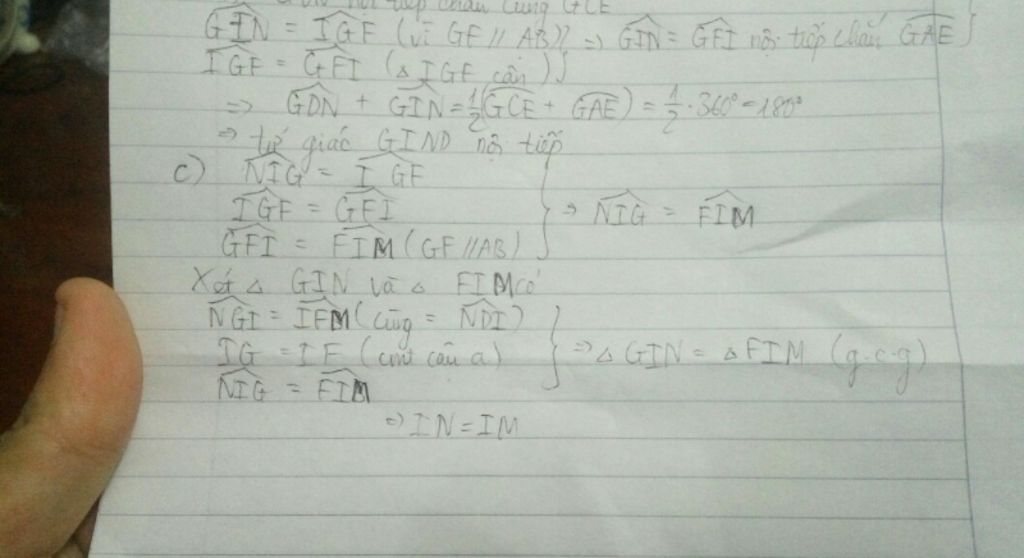 nội tiếp chắn cung GCE
GIN = IGF (vì GF // AB) } ⇒ GIN = GFI nội tiếp chắn GAE }
IGF = GFI (△ IGF cân)
⇒ GDN + GIN = 1/2 (GCE + GAE) = 1/2 · 360° = 180°
⇒ tứ giác GIND nội tiếp
c) NIG = IGF
IGF = GFI } ⇒ NIG = FIM
GFI = FIM (GF // AB)
Xét △ GIN và △ FIM có
NGI = IFM (cùng = NDI)
IG = IF (cmt câu a) } ⇒ △ GIN = △ FIM (g.c.g)
NIG = FIM
⇒ IN = IM